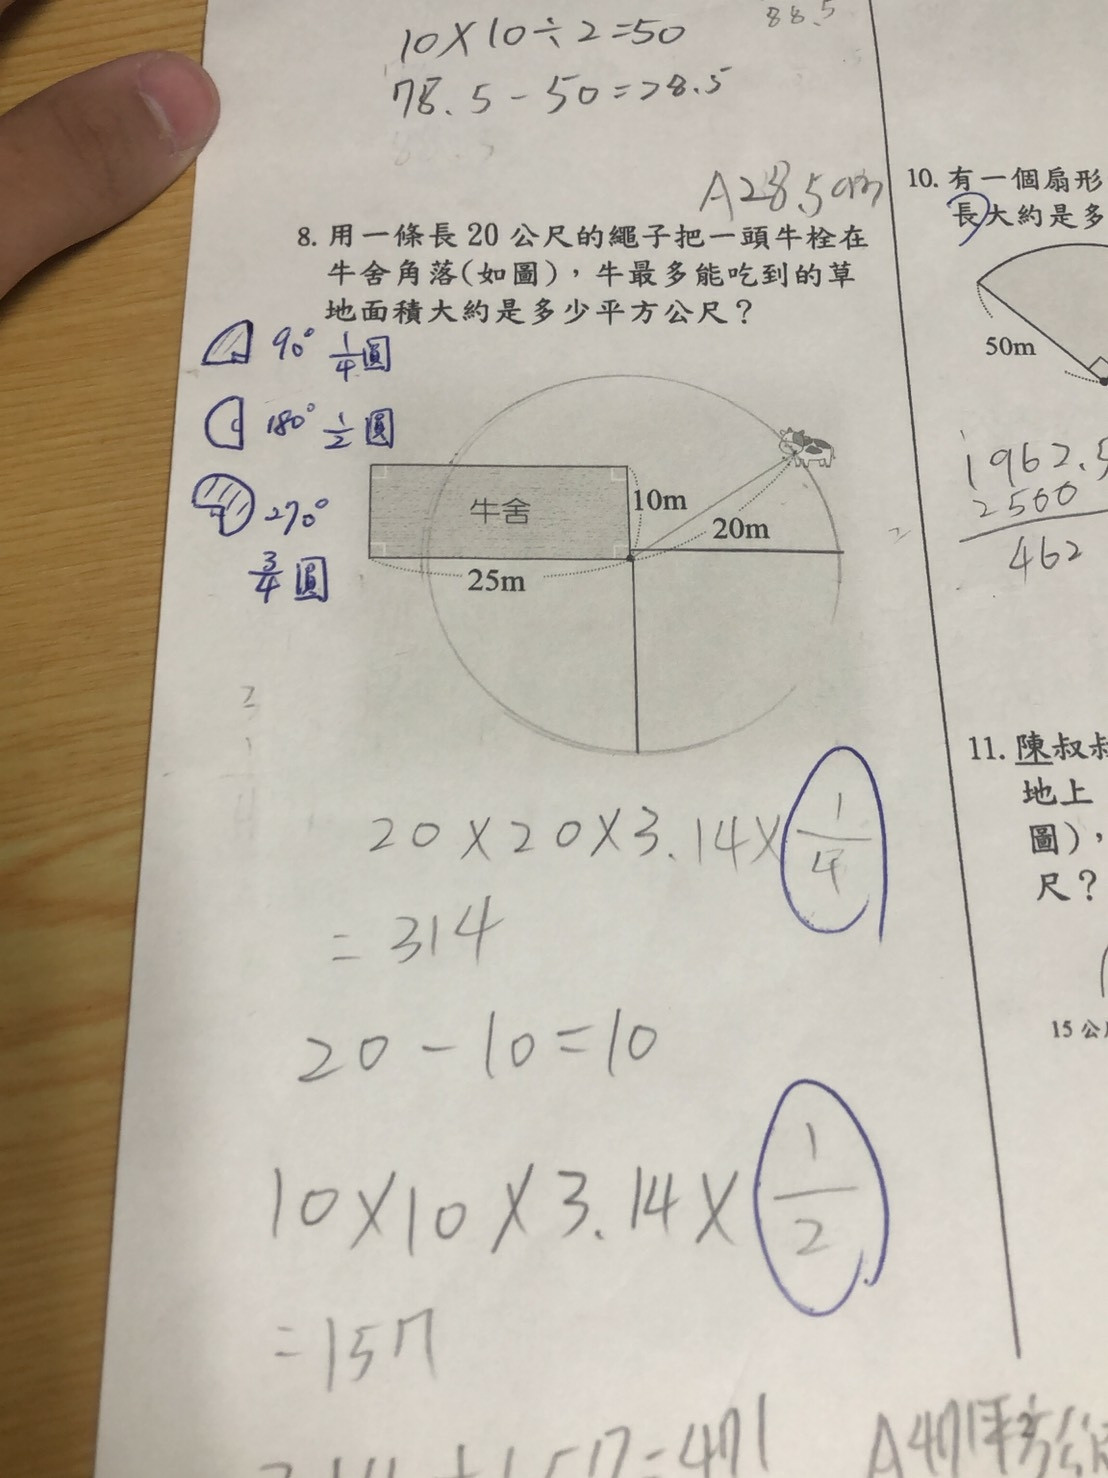 88.5
10×10÷2=50
78.5-50=28.5
A28.5cm
8. 用一條長20公尺的繩子把一頭牛栓在
牛舍角落(如圖),牛最多能吃到的草
地面積大約是多少平方公尺?
90° 1/4圓
180° 1/2圓
270°
3/4圓
牛舍
10m
20m
25m
20×20×3.14×1/4
=314
20-10=10
10×10×3.14×1/2
=157
314+157=471
A471平方公尺
10. 有一個扇形
長大約是多
50m
1962.5
2500
462
11. 陳叔叔
地上
圖),
尺?
15公